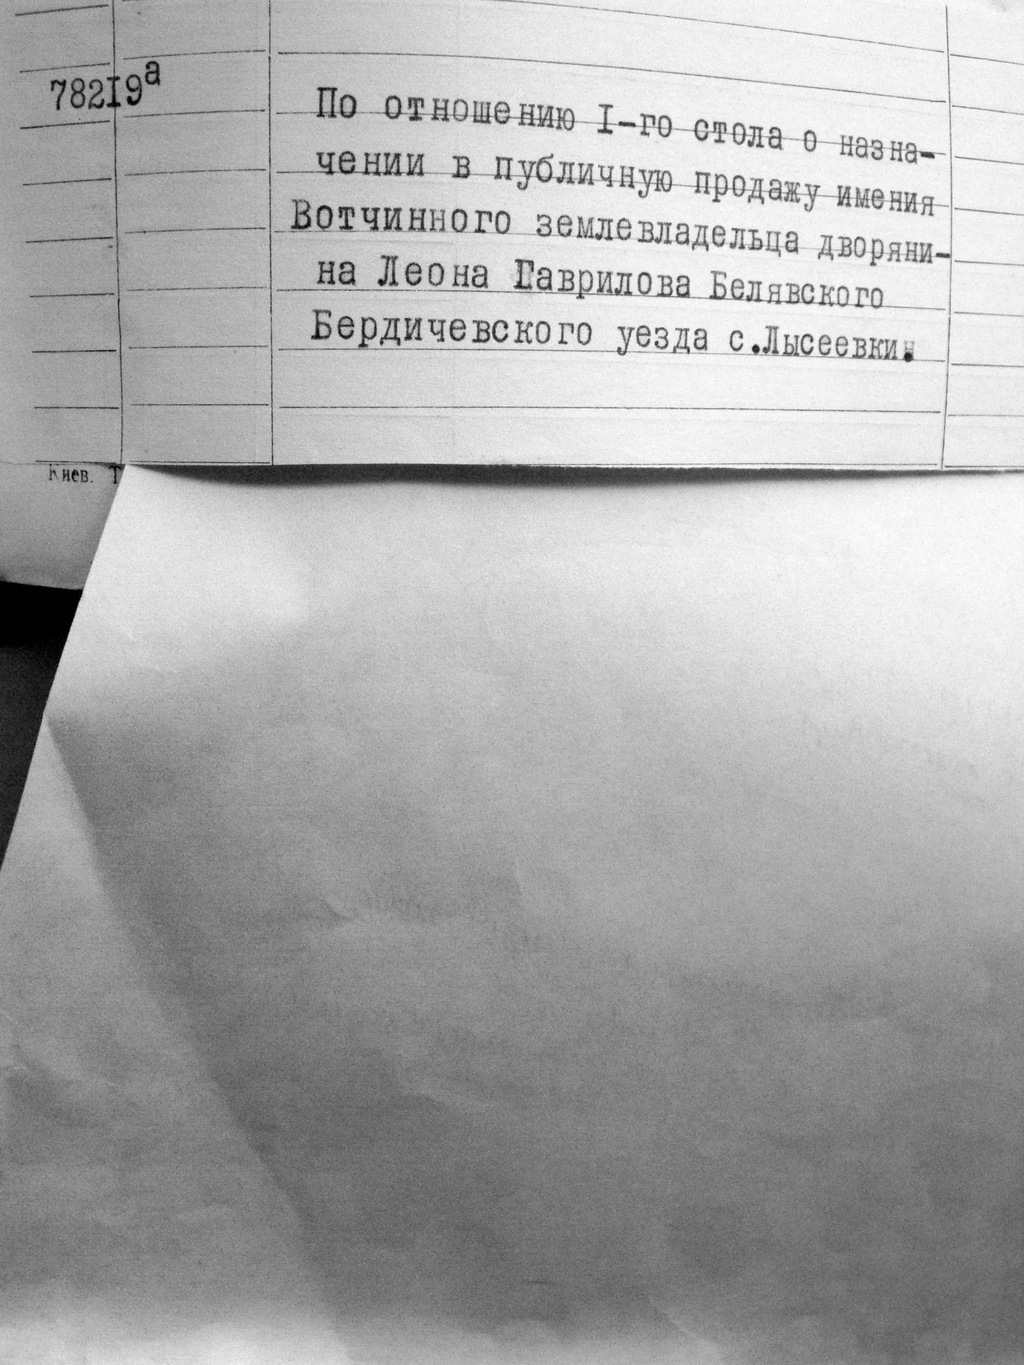 78219а
По отношению I-го стола о назна-
чении в публичную продажу имения
Вотчинного землевладельца дворяни-
на Леона Гаврилова Белявского
Бердичевского уезда с.Лысеевки.
Киев. Т